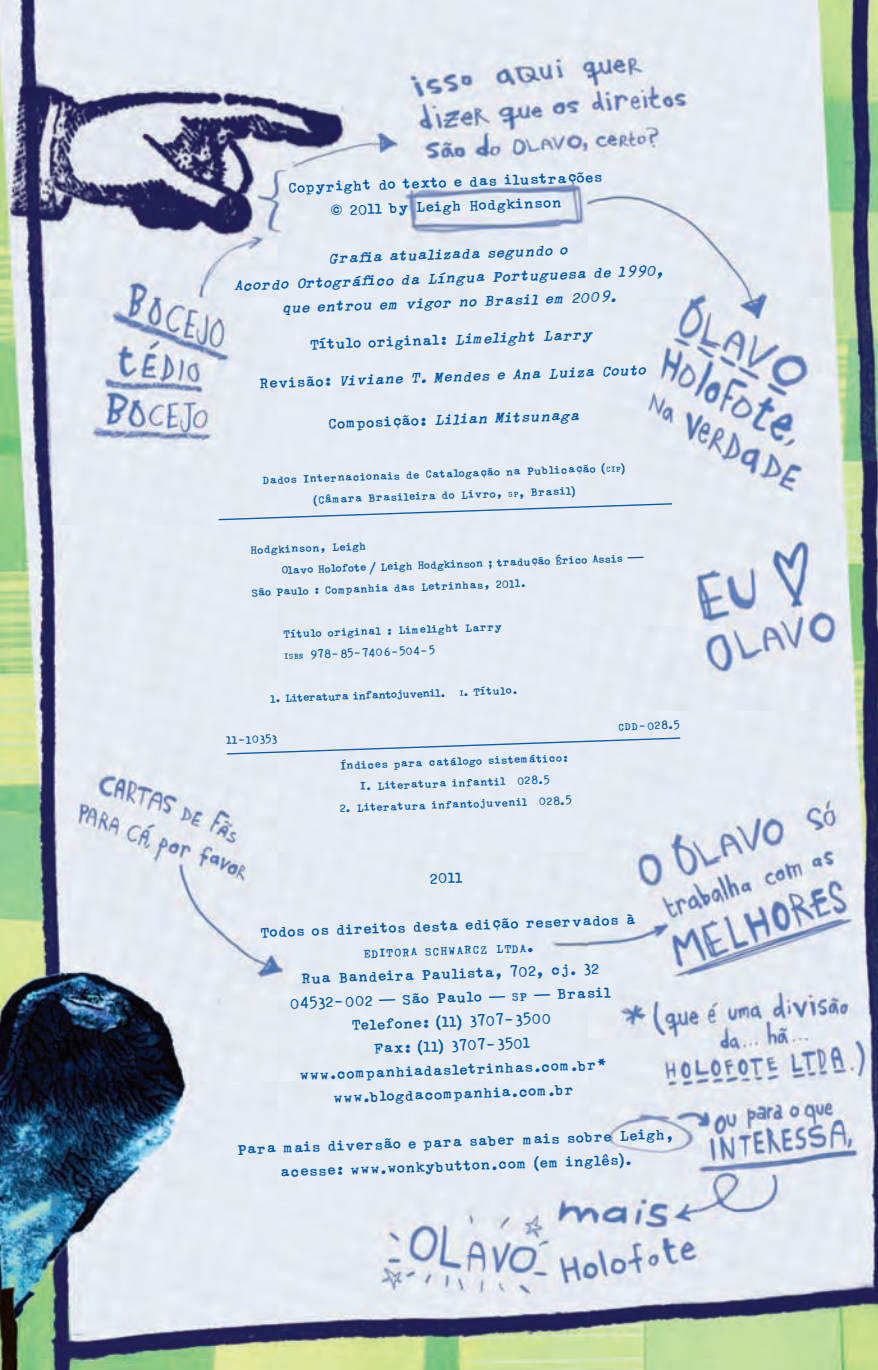 isso aqui quer
dizer que os direitos
são do OLAVO, certo?
Copyright do texto e das ilustrações
© 2011 by Leigh Hodgkinson
Grafia atualizada segundo o
Acordo Ortográfico da Língua Portuguesa de 1990,
que entrou em vigor no Brasil em 2009.
BOCEJO
TÉDIO
BOCEJO
OLAVO
Holofote,
Na VERDADE
Título original: Limelight Larry
Revisão: Viviane T. Mendes e Ana Luiza Couto
Composição: Lilian Mitsunaga
Dados Internacionais de Catalogação na Publicação (CIP)
(Câmara Brasileira do Livro, SP, Brasil)
Hodgkinson, Leigh
Olavo Holofote / Leigh Hodgkinson ; tradução Érico Assis —
São Paulo : Companhia das Letrinhas, 2011.
EU ♡
OLAVO
Título original : Limelight Larry
ISBN 978-85-7406-504-5
1. Literatura infantojuvenil. I. Título.
11-10353 CDD-028.5
Índices para catálogo sistemático:
I. Literatura infantil 028.5
2. Literatura infantojuvenil 028.5
CARTAS DE FÃS
PARA CÁ, por favor
2011
O OLAVO só
trabalha com as
MELHORES
Todos os direitos desta edição reservados à
EDITORA SCHWARCZ LTDA.
Rua Bandeira Paulista, 702, cj. 32
04532-002 — São Paulo — SP — Brasil
Telefone: (11) 3707-3500
Fax: (11) 3707-3501
www.companhiadasletrinhas.com.br*
www.blogdacompanhia.com.br
* (que é uma divisão
da... hã...
HOLOFOTE LTDA.)
Para mais diversão e para saber mais sobre Leigh,
acesse: www.wonkybutton.com (em inglês).
ou para o que
INTERESSA,
mais
OLAVO Holofote